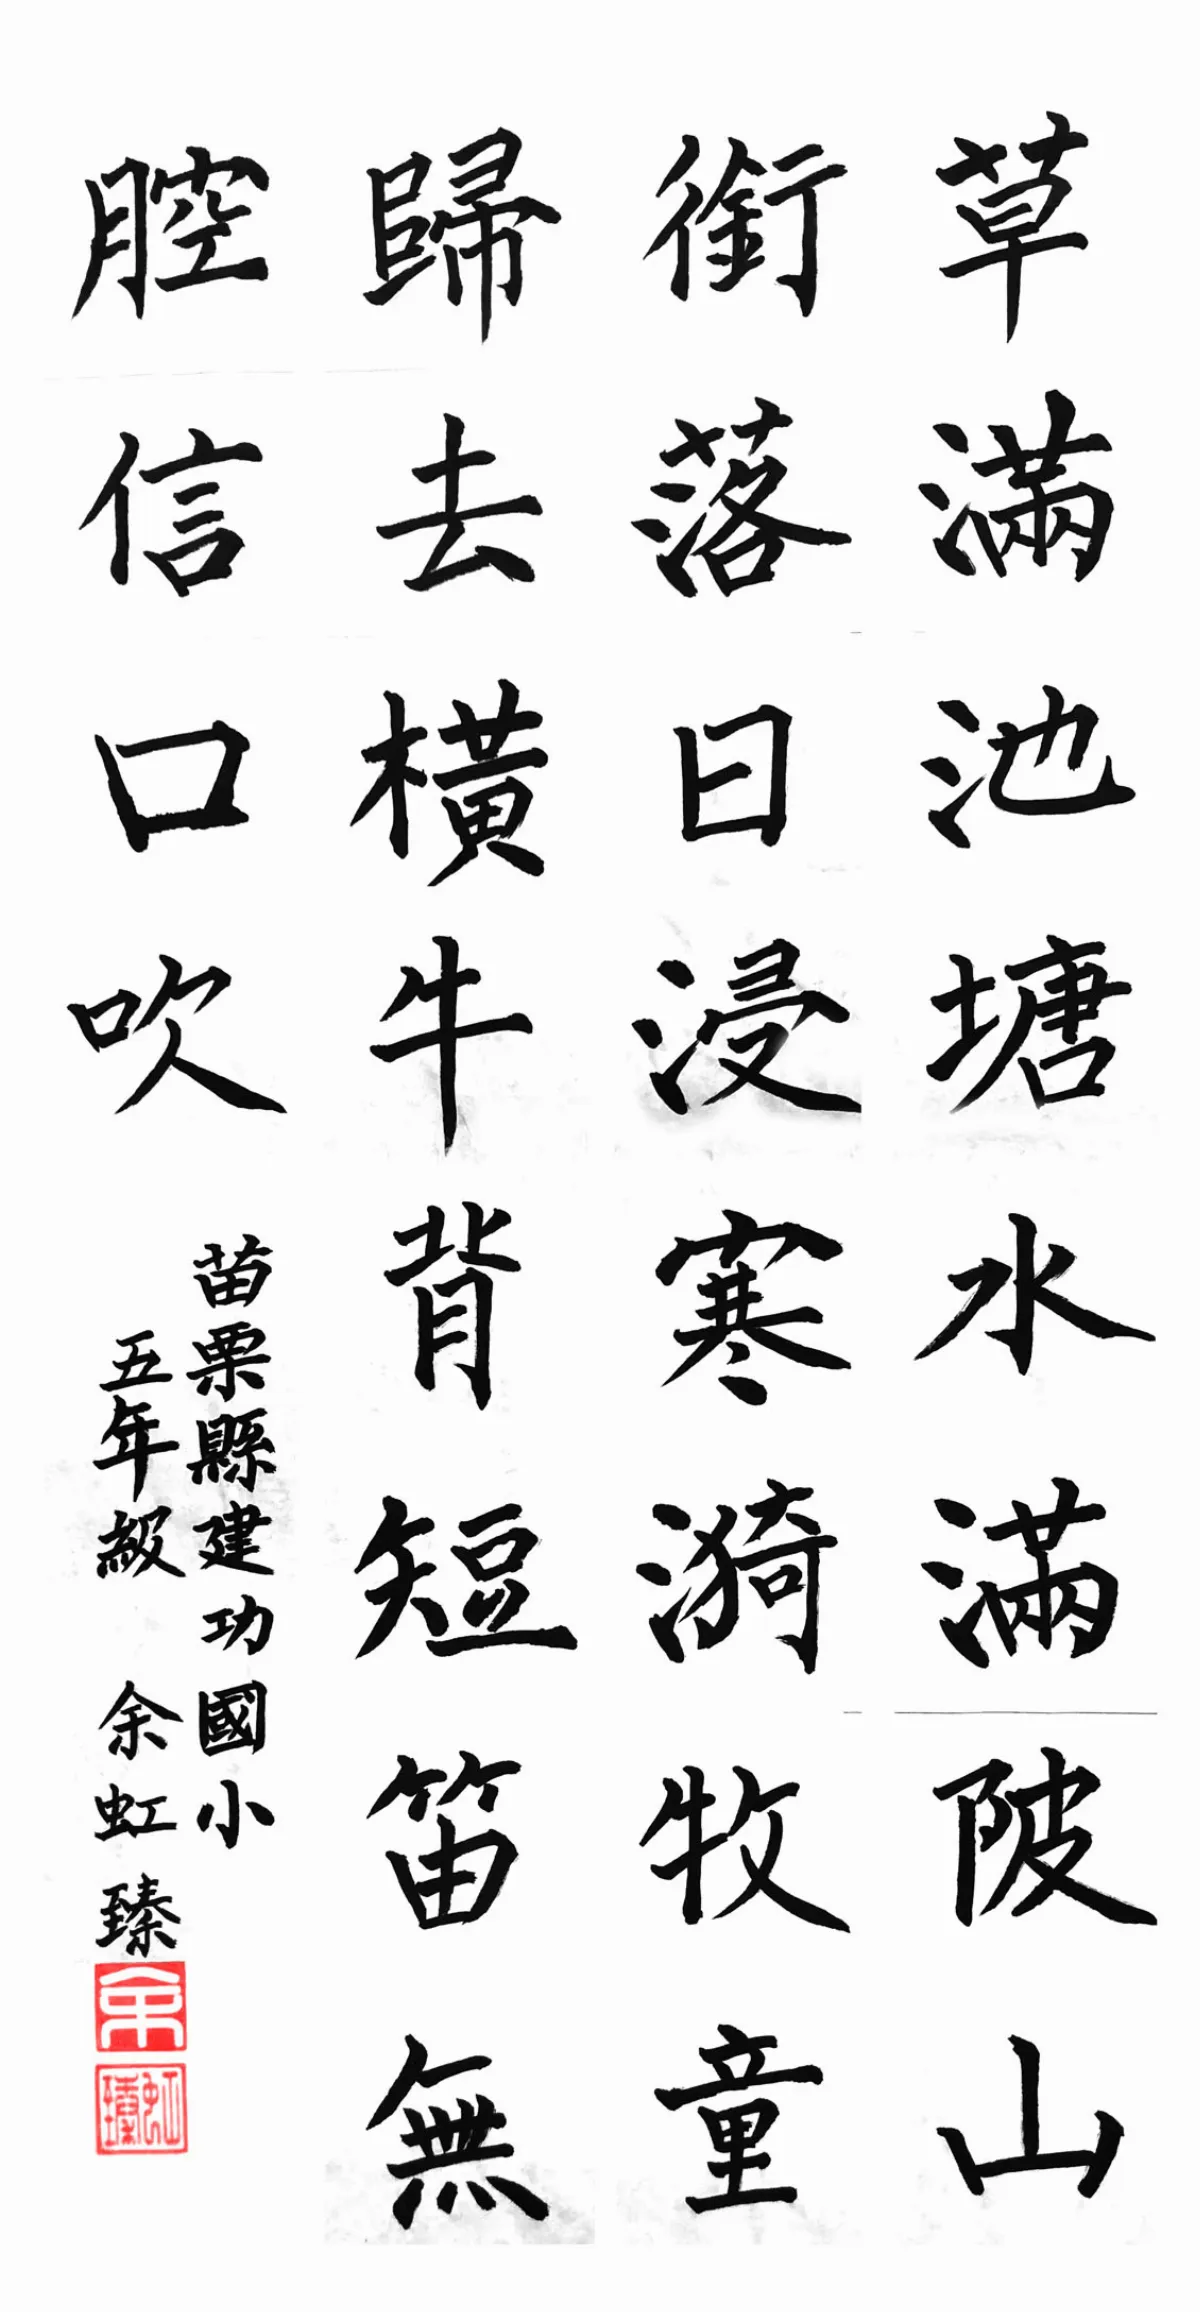 草滿池塘水滿陂山
銜落日浸寒漪牧童
歸去橫牛背短笛無
腔信口吹
苗栗縣建功國小
五年級 余虹臻
余
虹臻